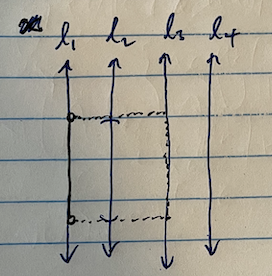 l₁ l₂ l₃ l₄